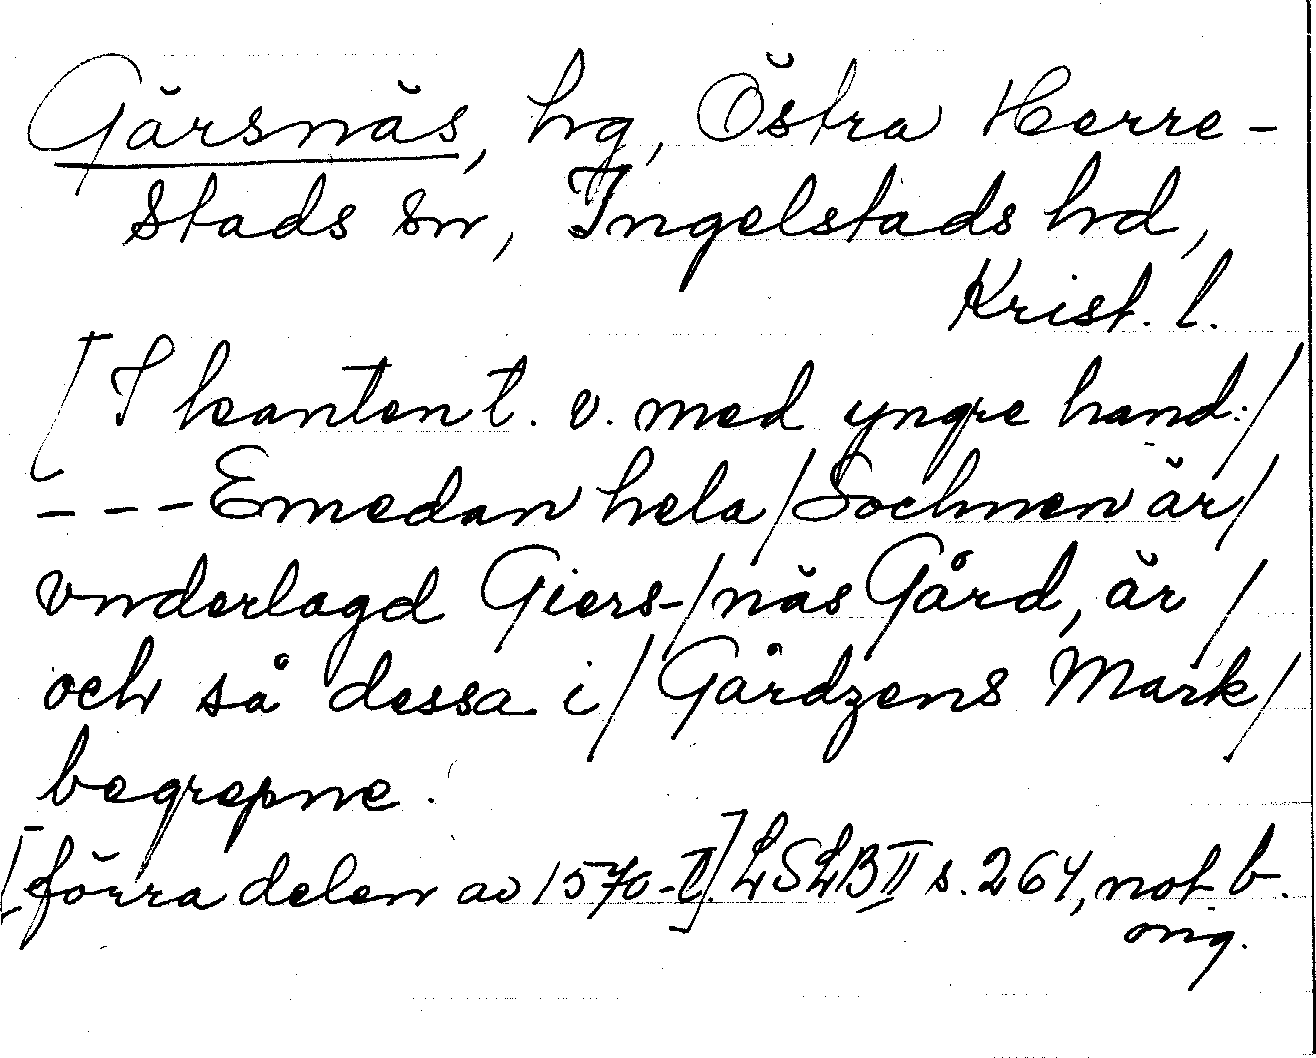 Gärsnäs, hg, Östra Herre-
stads sn, Ingelstads hd,
Krist. l.
[I kanten t. v. med yngre hand:/
---Emedan hela/Sochnen är/
vnderlagd Giers-/näs Gård, är/
och så dessa i/Gårdzens Mark/
begrepne.
[förra delen av 1570-t] LSLB II s. 264, not b.
orig.